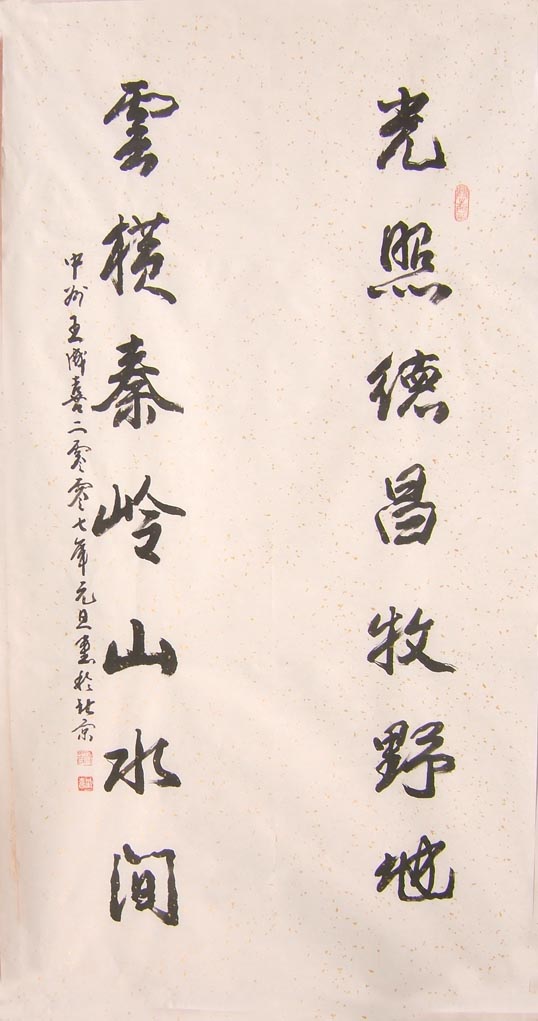 光照德昌牧野地
雲横秦岭山水间
中州王成喜二零零七年元旦書於北京